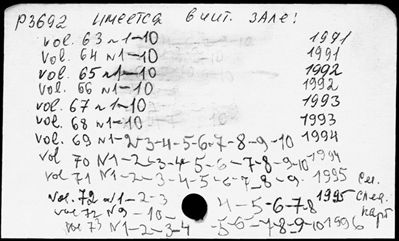 Р3692 имеется в чит. зале!
vol. 63 N1-10 1991
vol. 64 N1-10 1991
vol. 65 N1-10 1992
vol. 66 N1-10 1992
vol. 67 N1-10 1993
vol. 68 N1-10 1993
vol. 69 N1-2-3-4-5-6-7-8-9-10 1994
vol 70 N1-2-3-4-5-6-7-8-9-10 1994
vol. 71 N1-2-3-4-5-6-7-8-9- 1995 См.
vol. 72 N1-2-3 4-5-6-7-8 1995 след.
vol. 72 N9-10- карт
vol 73 N1-2-3-4 -5-6-7-8-9-10 1996